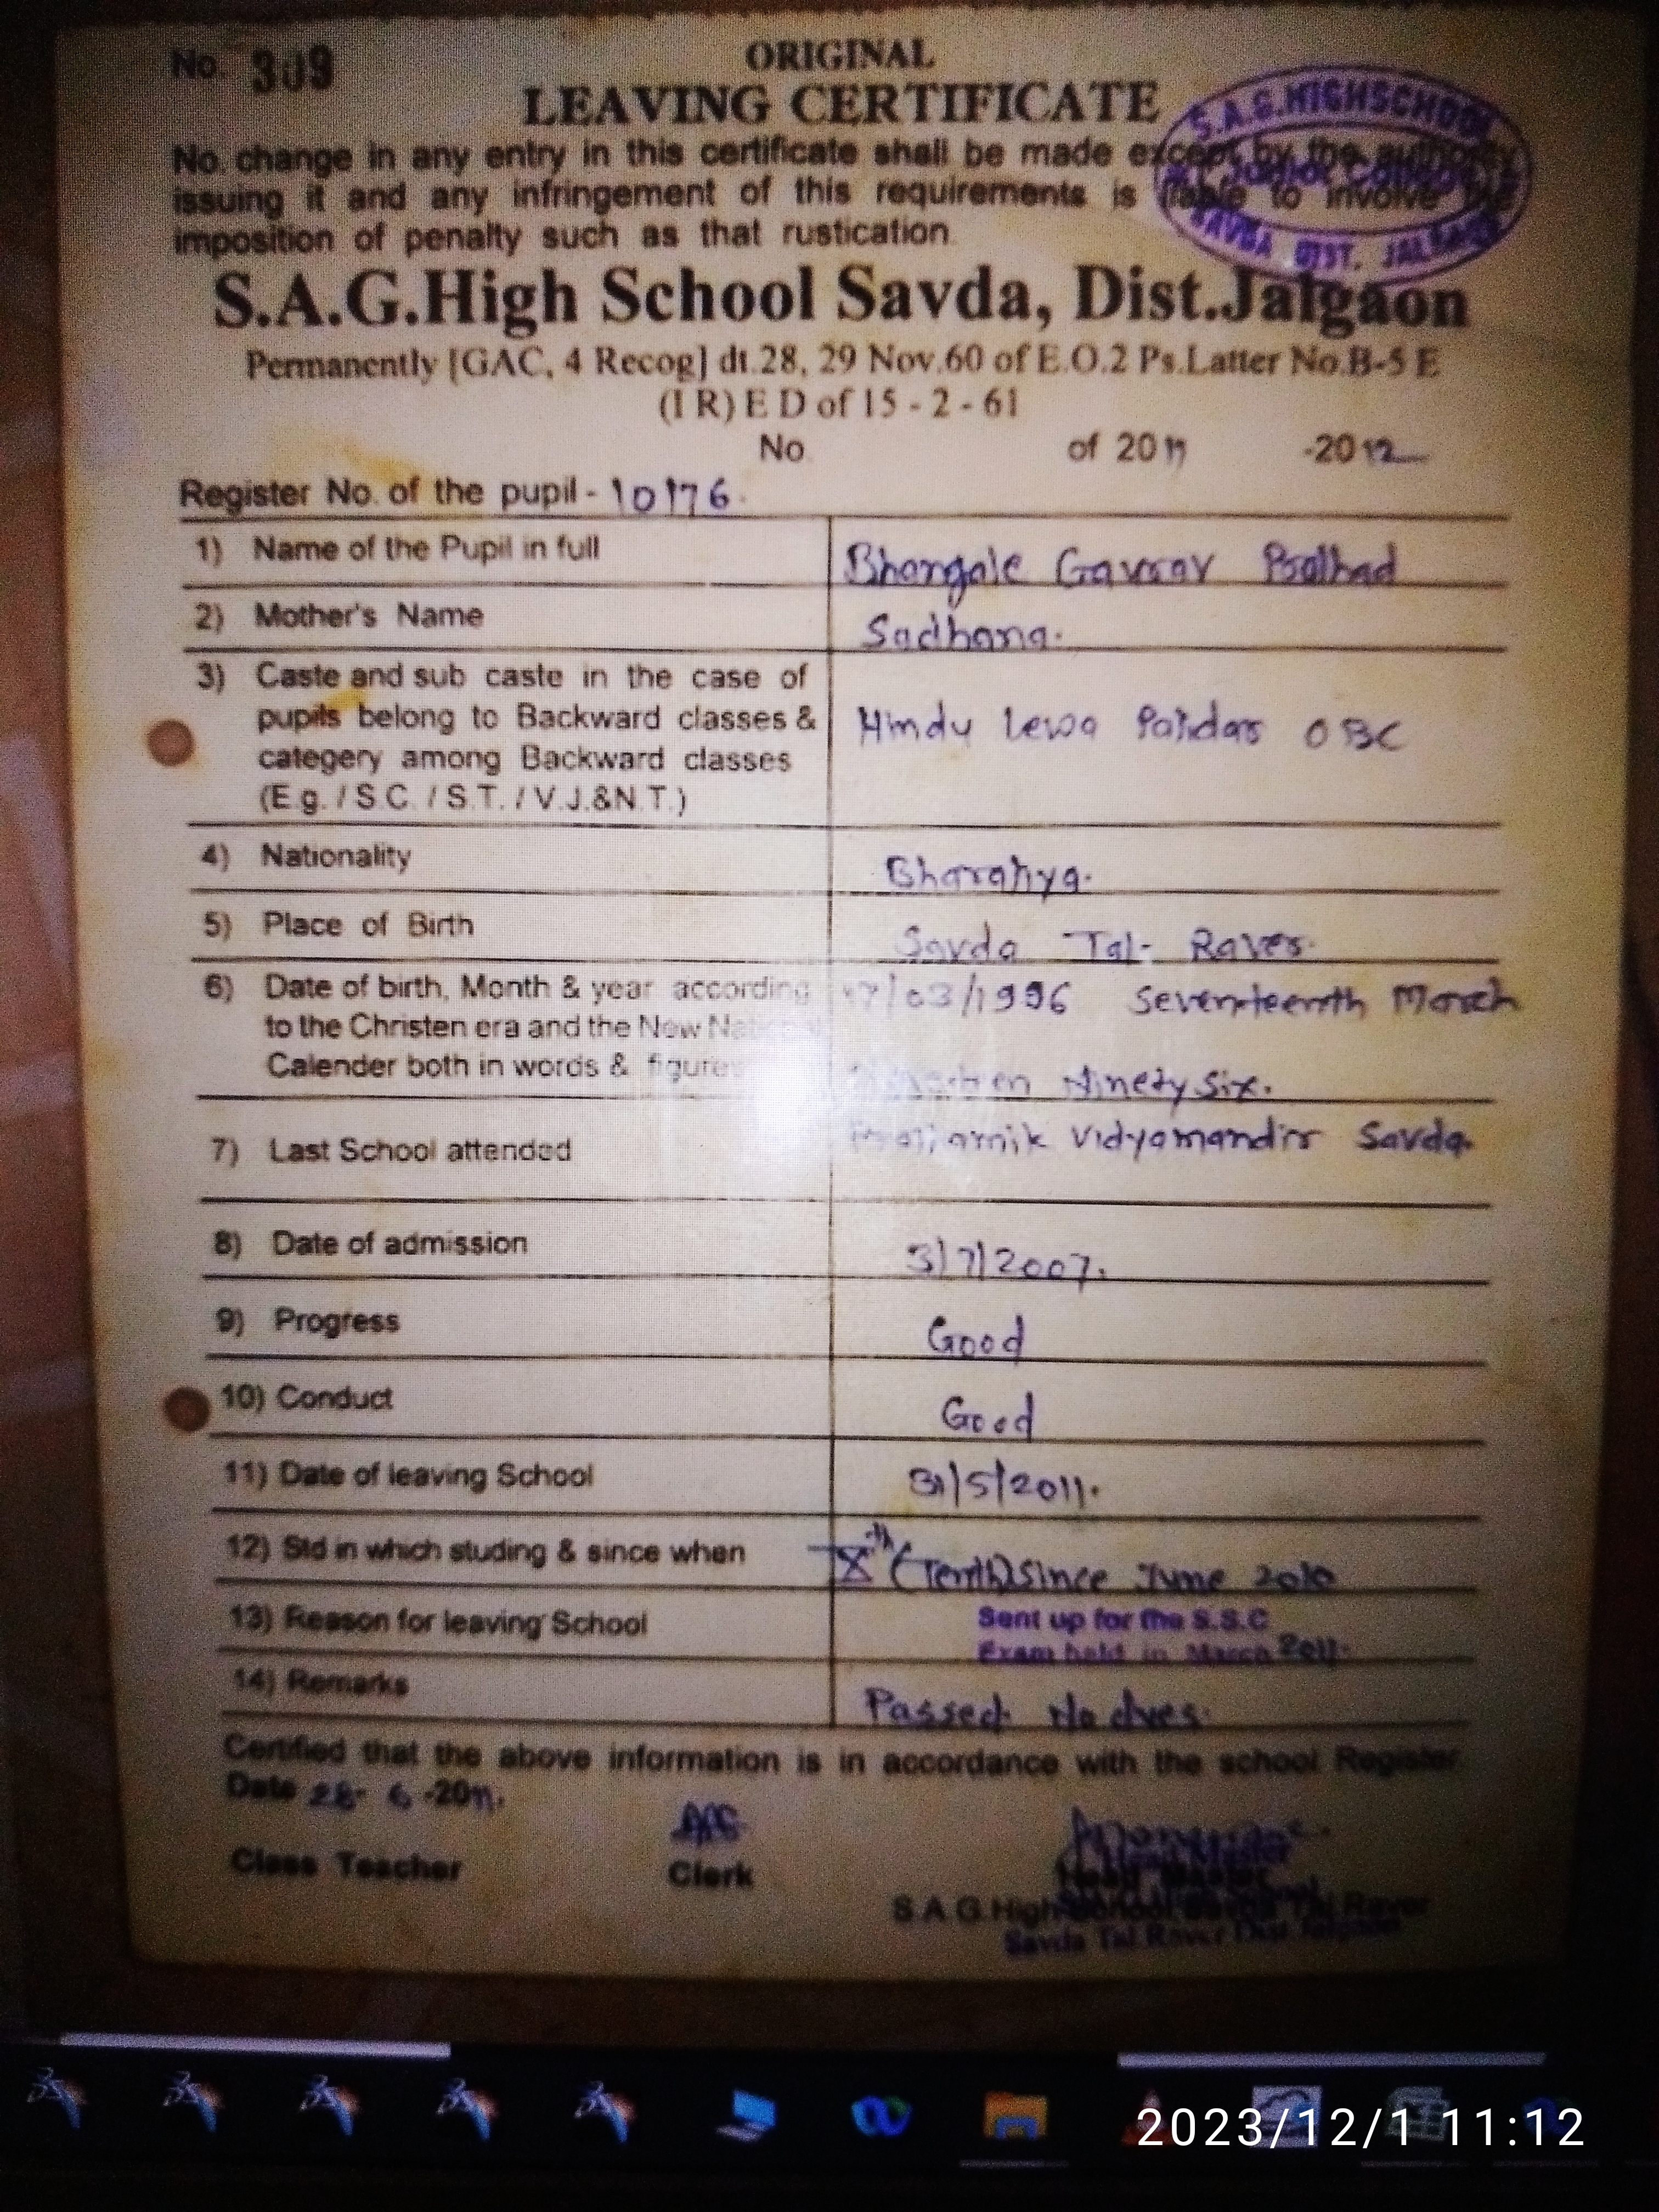 No. 309
ORIGINAL
LEAVING CERTIFICATE
S.A.G.HIGHSCHOOL
Junior College
SAVDA DIST. JALGAON
No. change in any entry in this certificate shall be made except by the authority
issuing it and any infringement of this requirements is liable to involve the
imposition of penalty such as that rustication.
S.A.G.High School Savda, Dist.Jalgaon
Permanently [GAC, 4 Recog] dt.28, 29 Nov.60 of E.O.2 Ps.Latter No.B-5 E
(I R) E D of 15 - 2 - 61
No. of 2011 -2012
Register No. of the pupil - 10176.
1) Name of the Pupil in full Bhangale Gaurav Pralhad
2) Mother's Name Sadhana.
3) Caste and sub caste in the case of
pupils belong to Backward classes & Hindu Lewa Patidar OBC
categery among Backward classes
(E.g. / S.C. / S.T. / V.J.&N.T.)
4) Nationality Bharatiya.
5) Place of Birth Savda Tal- Raver.
6) Date of birth, Month & year according 17/03/1996 Seventeenth March
to the Christen era and the New
Calender both in words & figures Ninety Six.
7) Last School attended Vidyamandir Savda.
8) Date of admission 3/7/2007.
9) Progress Good
10) Conduct Good
11) Date of leaving School 31/5/2011.
12) Std in which studing & since when Xth (Tenth) Since June 2010
13) Reason for leaving School Sent up for the S.S.C
Exam held in March 2011.
14) Remarks Passed. No dues.
Certified that the above information is in accordance with the school Register.
Date 28- 6 -2011.
Class Teacher Clerk Head Master
S.A.G.High School Savda Tal.Raver
Savda Tal.Raver Dist.Jalgaon
2023/12/1 11:12